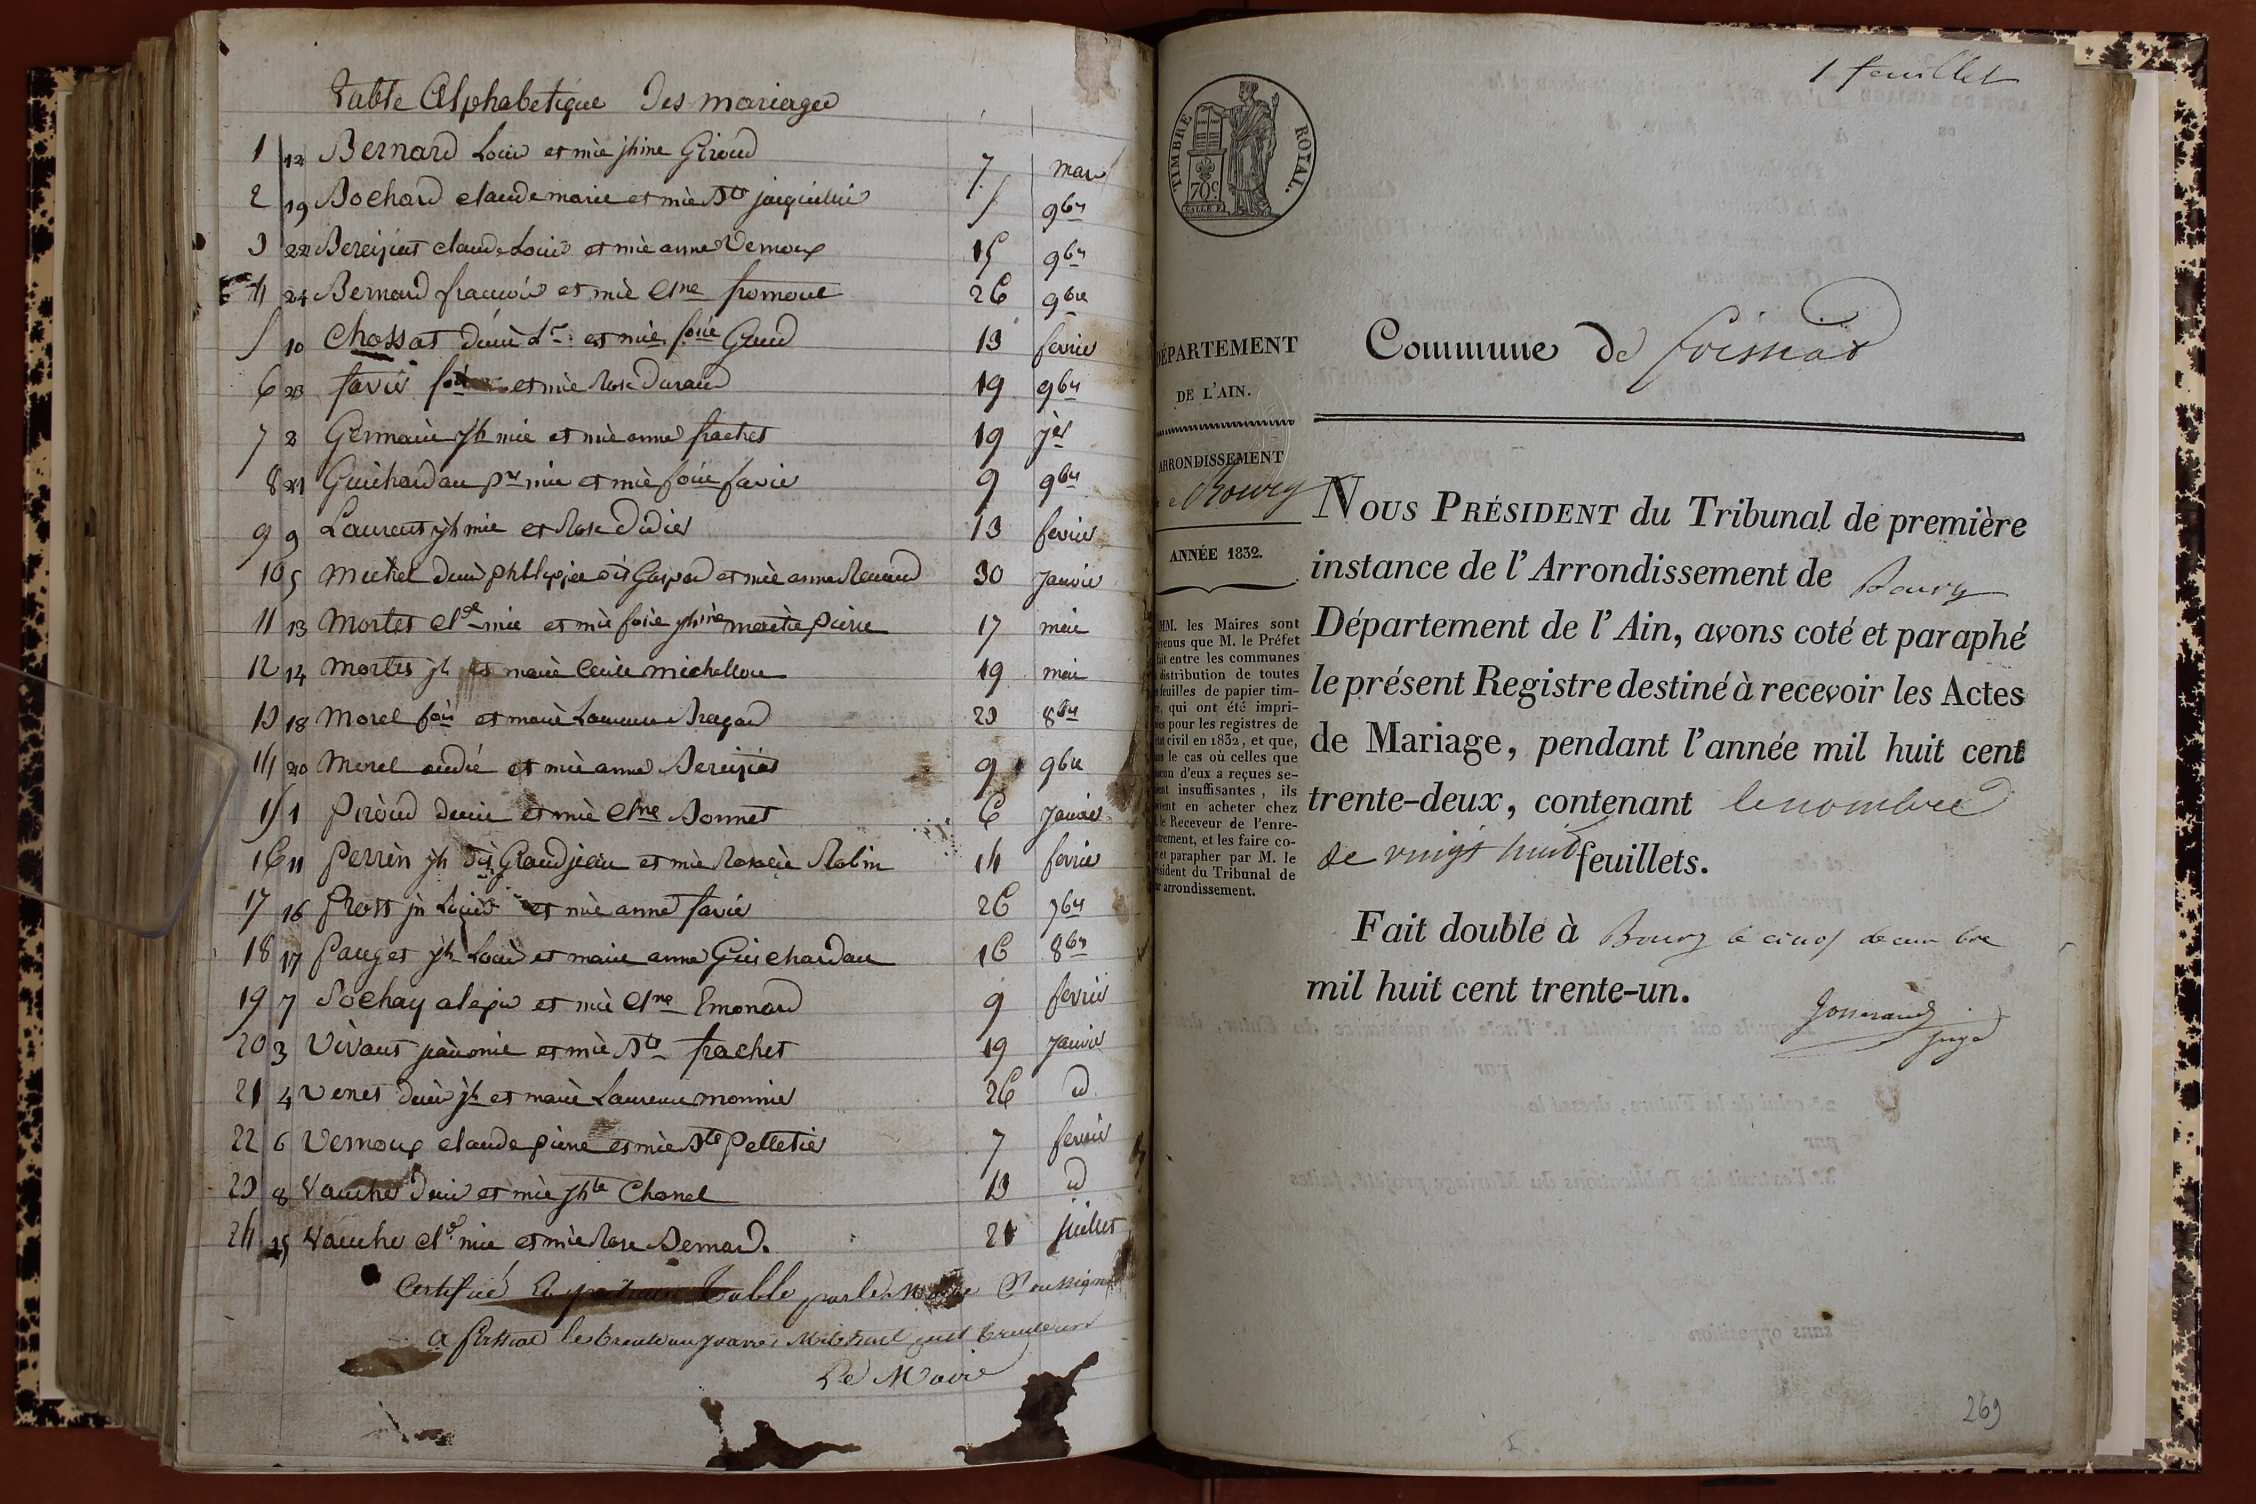 Table Alphabetique des mariages
1 12 Bernard Louis et mie jhine Giroud 7 mars
2 19 Bochard claude marie et mie Bte 5 9bre
3 22 claude Louis et mie anne Vernoux 15 9bre
4 24 Bernard françois et mie Clne fromont 26 9bre
5 10 Chossat et mie foise 13 fevrier
6 23 favier et mie Rose Durand 19 9bre
7 2 Germain jh mie et mie anne frachet 19
8 21 Guichardan mie et mie foise favier 9 9bre
9 9 Laurent jh mie et Rose Didier 13 fevrier
10 5 Michel Denis philippe dit Gaspard et mie anne Renaud 30 janvier
11 13 Mortet Cle mie et mie foise jhine Pierre 17 mai
12 14 Mortet jh et marie Cecile michellon 19 mai
13 18 Morel fois et marie Laurence 23 8bre
14 20 Morel andré et mie anne 9 9bre
15 1 Piroud Denis et mie Clne Bonnet 6 janvier
16 11 Perrin jh dit Grandjean et mie Robin 14 fevrier
17 16 jn Louis et mie anne favier 26 7bre
18 17 Pauget jh Louis et marie anne Guichardan 16 8bre
19 7 Sochay alexis et mie Clne Emonard 9 fevrier
20 3 Vivant et mie Bte frachet 19 janvier
21 4 Venet Denis jh et marie Laurence monnier 26 id
22 6 Vernoux claude pierre et mie Bte Pelletier 7 fevrier
23 8 Vauche Denis et mie jhte Chanel 13 id
24 15 Vauche Cle mie et mie Rose Bernard. 21 juillet
Certifié la Table par le Maire Soussigné
a foissiat le trente un janvier Mil huit cent
Le Maire
1 feuillet
TIMBRE ROYAL.
70c.
DÉPARTEMENT
DE L'AIN.
ARRONDISSEMENT
de Bourg
ANNÉE 1832.
MM. les Maires sont
prévenus que M. le Préfet
fait entre les communes
la distribution de toutes
les feuilles de papier tim-
bré, qui ont été impri-
mées pour les registres de
l'état civil en 1832, et que,
dans le cas où celles que
chacun d'eux a reçues se-
raient insuffisantes, ils
doivent en acheter chez
le Receveur de l'enre-
gistrement, et les faire co-
ter et parapher par M. le
Président du Tribunal de
leur arrondissement.
Commune de foissiat
NOUS PRÉSIDENT du Tribunal de première
instance de l'Arrondissement de Bourg
Département de l'Ain, avons coté et paraphé
le présent Registre destiné à recevoir les Actes
de Mariage, pendant l'année mil huit cent
trente-deux, contenant le nombre
de vingt huit feuillets.
Fait double à Bourg le cinq decembre
mil huit cent trente-un.
juge
269